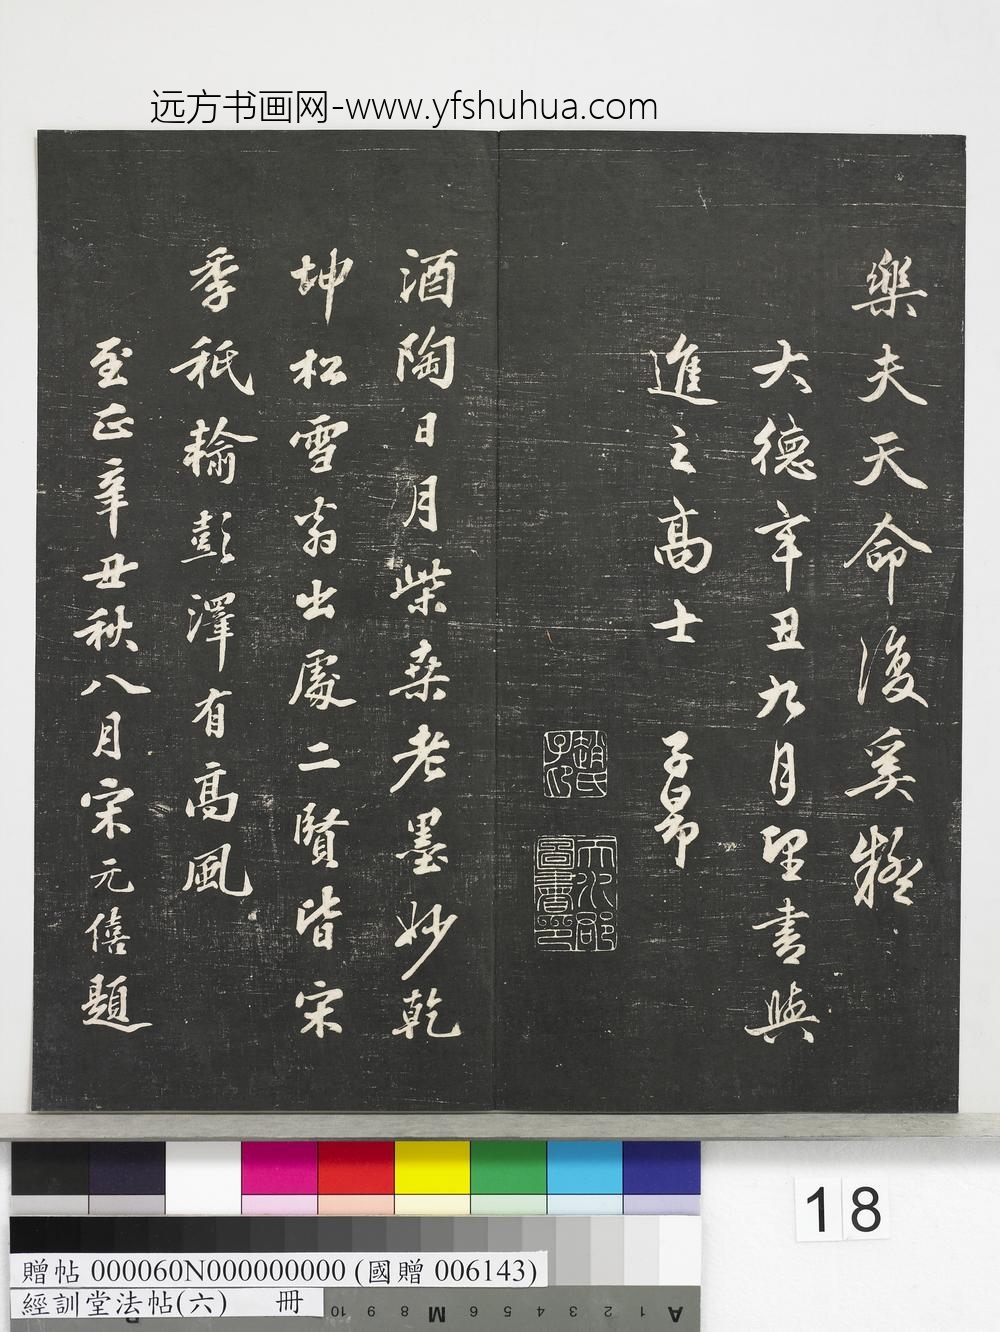 远方书画网-www.yfshuhua.com
樂夫天命復奚疑
大德辛丑九月望書與
進之高士 子昂
趙氏子印
天水郡圖書印
酒陶日月柴桑老墨妙乾
坤松雪翁出處二賢皆宋
季秖輸彭澤有高風
至正辛丑秋八月宋元僖題
18
贈帖 000060N000000000 (國贈 006143)
經訓堂法帖(六) 冊
A 1 2 3 4 5 6 M 8 9 10